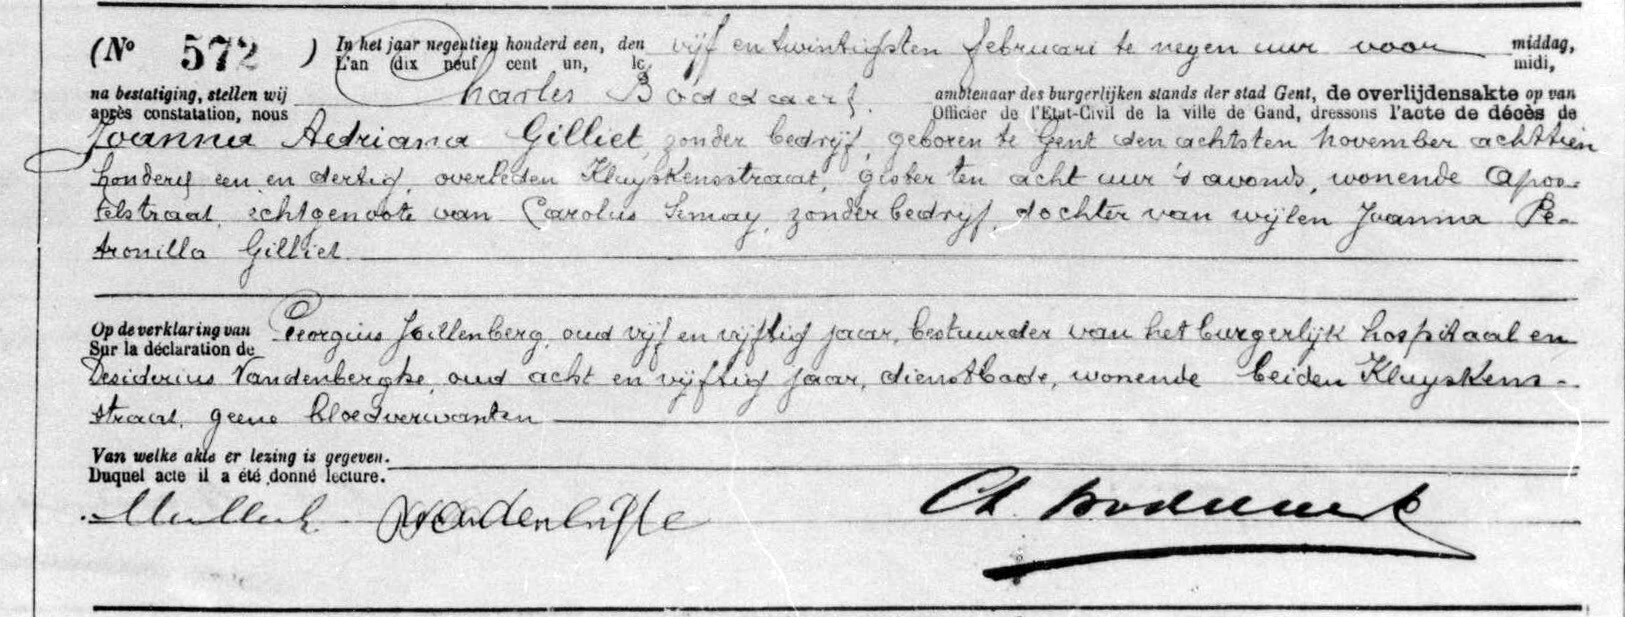 (No 572 ) In het jaar negentien honderd een, den vijf en twintigsten februari te negen uur voor middag,
L'an dix neuf cent un, le midi,
na bestatiging, stellen wij Charles Bodedaert. ambtenaar des burgerlijken stands der stad Gent, de overlijdensakte op van
après constatation, nous Officier de l'Etat-Civil de la ville de Gand, dressons l'acte de décès de
Joanna Aedriana Gilliet, zonder bedrijf, geboren te Gent den achtsten november achttien
honderd een en dertig, overleden Kluyskensstraat, gister ten acht uur 's avonds, wonende Apos-
telstraat, echtgenoote van Carolus Semay, zonder bedrijf, dochter van wijlen Joanna Pe-
tronilla Gilliet.
Op de verklaring van Georgius Hillenberg, oud vijf en vijftig jaar, bestuurder van het burgerlijk hospitaal en
Sur la déclaration de
Desiderius Vandenberghe, oud acht en vijftig jaar, dienstbode, wonende beiden Kluyskens-
straat, geene bloedverwanten
Van welke akte er lezing is gegeven.
Duquel acte il a été donné lecture.